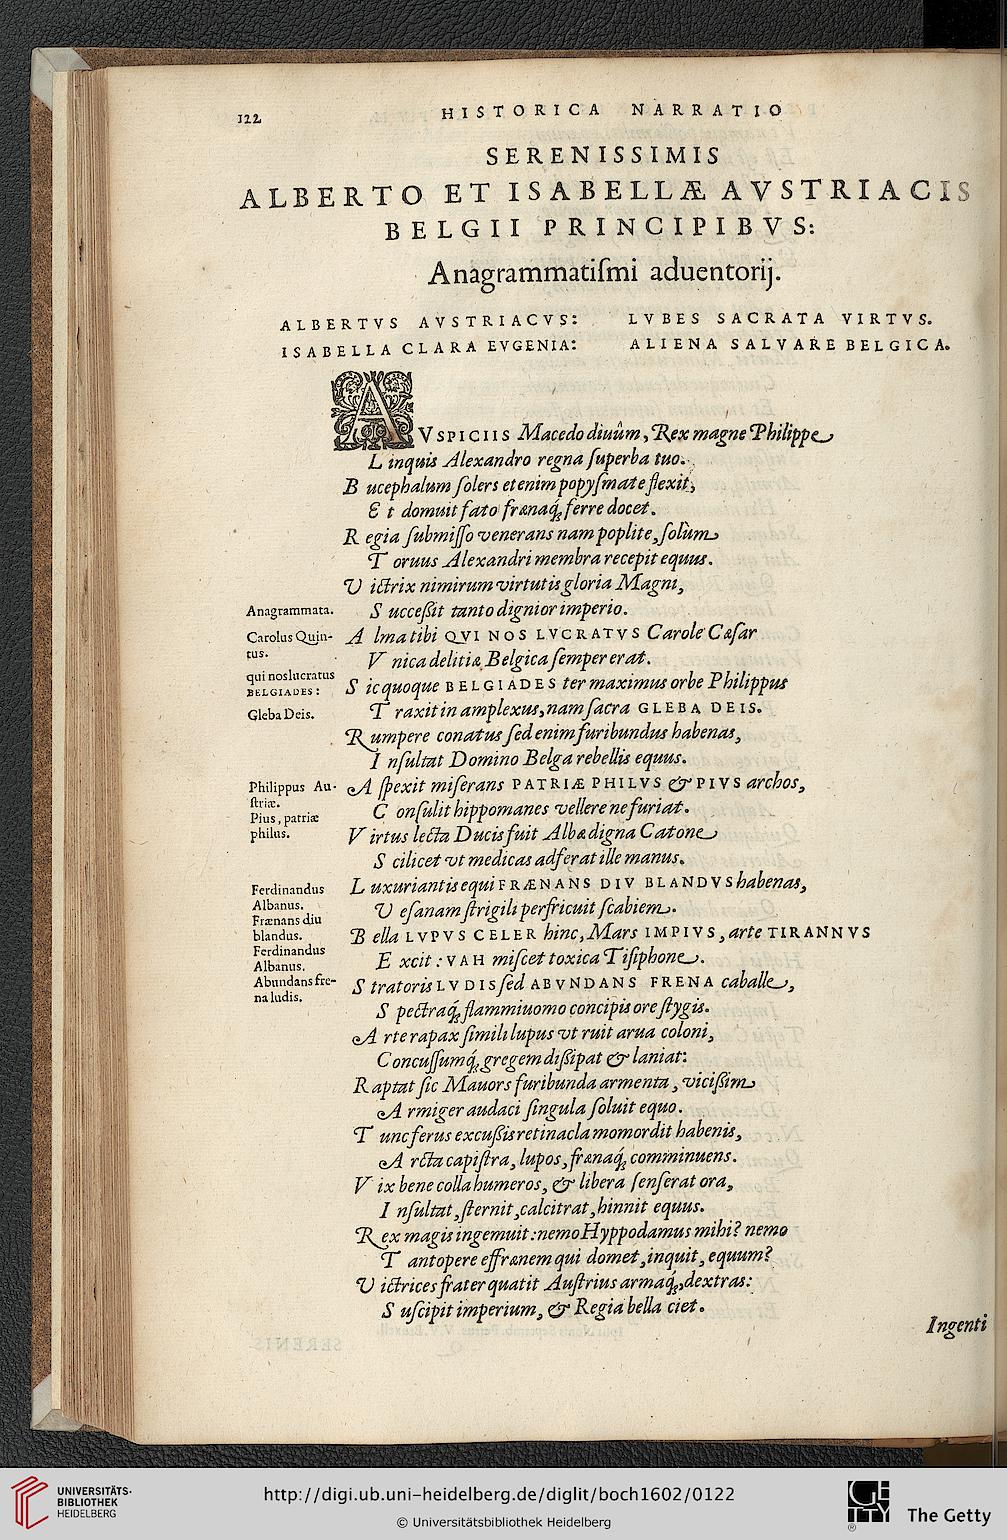 122 HISTORICA NARRATIO
SERENISSIMIS
ALBERTO ET ISABELLÆ AVSTRIACIS
BELGII PRINCIPIBVS:
Anagrammatiſmi aduentorij.
ALBERTVS AVSTRIACVS: LVBES SACRATA VIRTVS.
ISABELLA CLARA EVGENIA: ALIENA SALVARE BELGICA.
AVSPICIIS Macedo diuûm, Rex magne Philippe
L inquis Alexandro regna ſuperba tuo.
B ucephalum ſolers etenim popyſmate flexit,
E t domuit fato frænaq́; ferre docet.
R egia ſubmiſſo venerans nam poplite, ſolùm
T oruus Alexandri membra recepit equus.
V ictrix nimirum virtutis gloria Magni,
Anagrammata. S ucceßit tanto dignior imperio.
Carolus Quin- A lma tibi QVI NOS LVCRATVS Carole Cæſar
tus. V nica delitiæ Belgica ſemper erat.
qui nos lucratus S ic quoque BELGIADES ter maximus orbe Philippus
BELGIADES:
Gleba Deis. T raxit in amplexus, nam ſacra GLEBA DEIS.
R umpere conatus ſed enim furibundus habenas,
I nſultat Domino Belga rebellis equus.
Philippus Au- A ſpexit miſerans PATRIÆ PHILVS & PIVS archos,
ſtriæ.
Pius, patriæ C onſulit hippomanes vellere ne furiat.
philus. V irtus lecta Ducis fuit Albæ digna Catone
S cilicet vt medicas adferat ille manus.
Ferdinandus L uxuriantis equi FRÆNANS DIV BLANDVS habenas,
Albanus. V eſanam ſtrigili perfricuit ſcabiem.
Frænans diu
blandus. B ella LVPVS CELER hinc, Mars IMPIVS, arte TIRANNVS
Ferdinandus E xcit: VAH miſcet toxica Tiſiphone.
Albanus.
Abundans fre- S tratoris LVDIS ſed ABVNDANS FRENA caballe,
na ludis. S pectraq́; flammiuomo concipis ore ſtygis.
A rte rapax ſimili lupus vt ruit arua coloni,
C oncuſſumq́; gregem dißipat & laniat:
R aptat ſic Mauors furibunda armenta, vicißim
A rmiger audaci ſingula ſoluit equo.
T unc ferus excußis retinacla momordit habenis,
A rcta capiſtra, lupos, frænaq́; comminuens.
V ix bene colla humeros, & libera ſenſerat ora,
I nſultat, ſternit, calcitrat, hinnit equus.
R ex magis ingemuit: nemo Hyppodamus mihi? nemo
T antopere effrænem qui domet, inquit, equum?
V ictrices frater quatit Auſtrius armaq́;, dextras:
S uſcipit imperium, & Regia bella ciet.
Ingenti
UNIVERSITÄTS-
BIBLIOTHEK
HEIDELBERG
http://digi.ub.uni-heidelberg.de/diglit/boch1602/0122
© Universitätsbibliothek Heidelberg
GETTY
The Getty